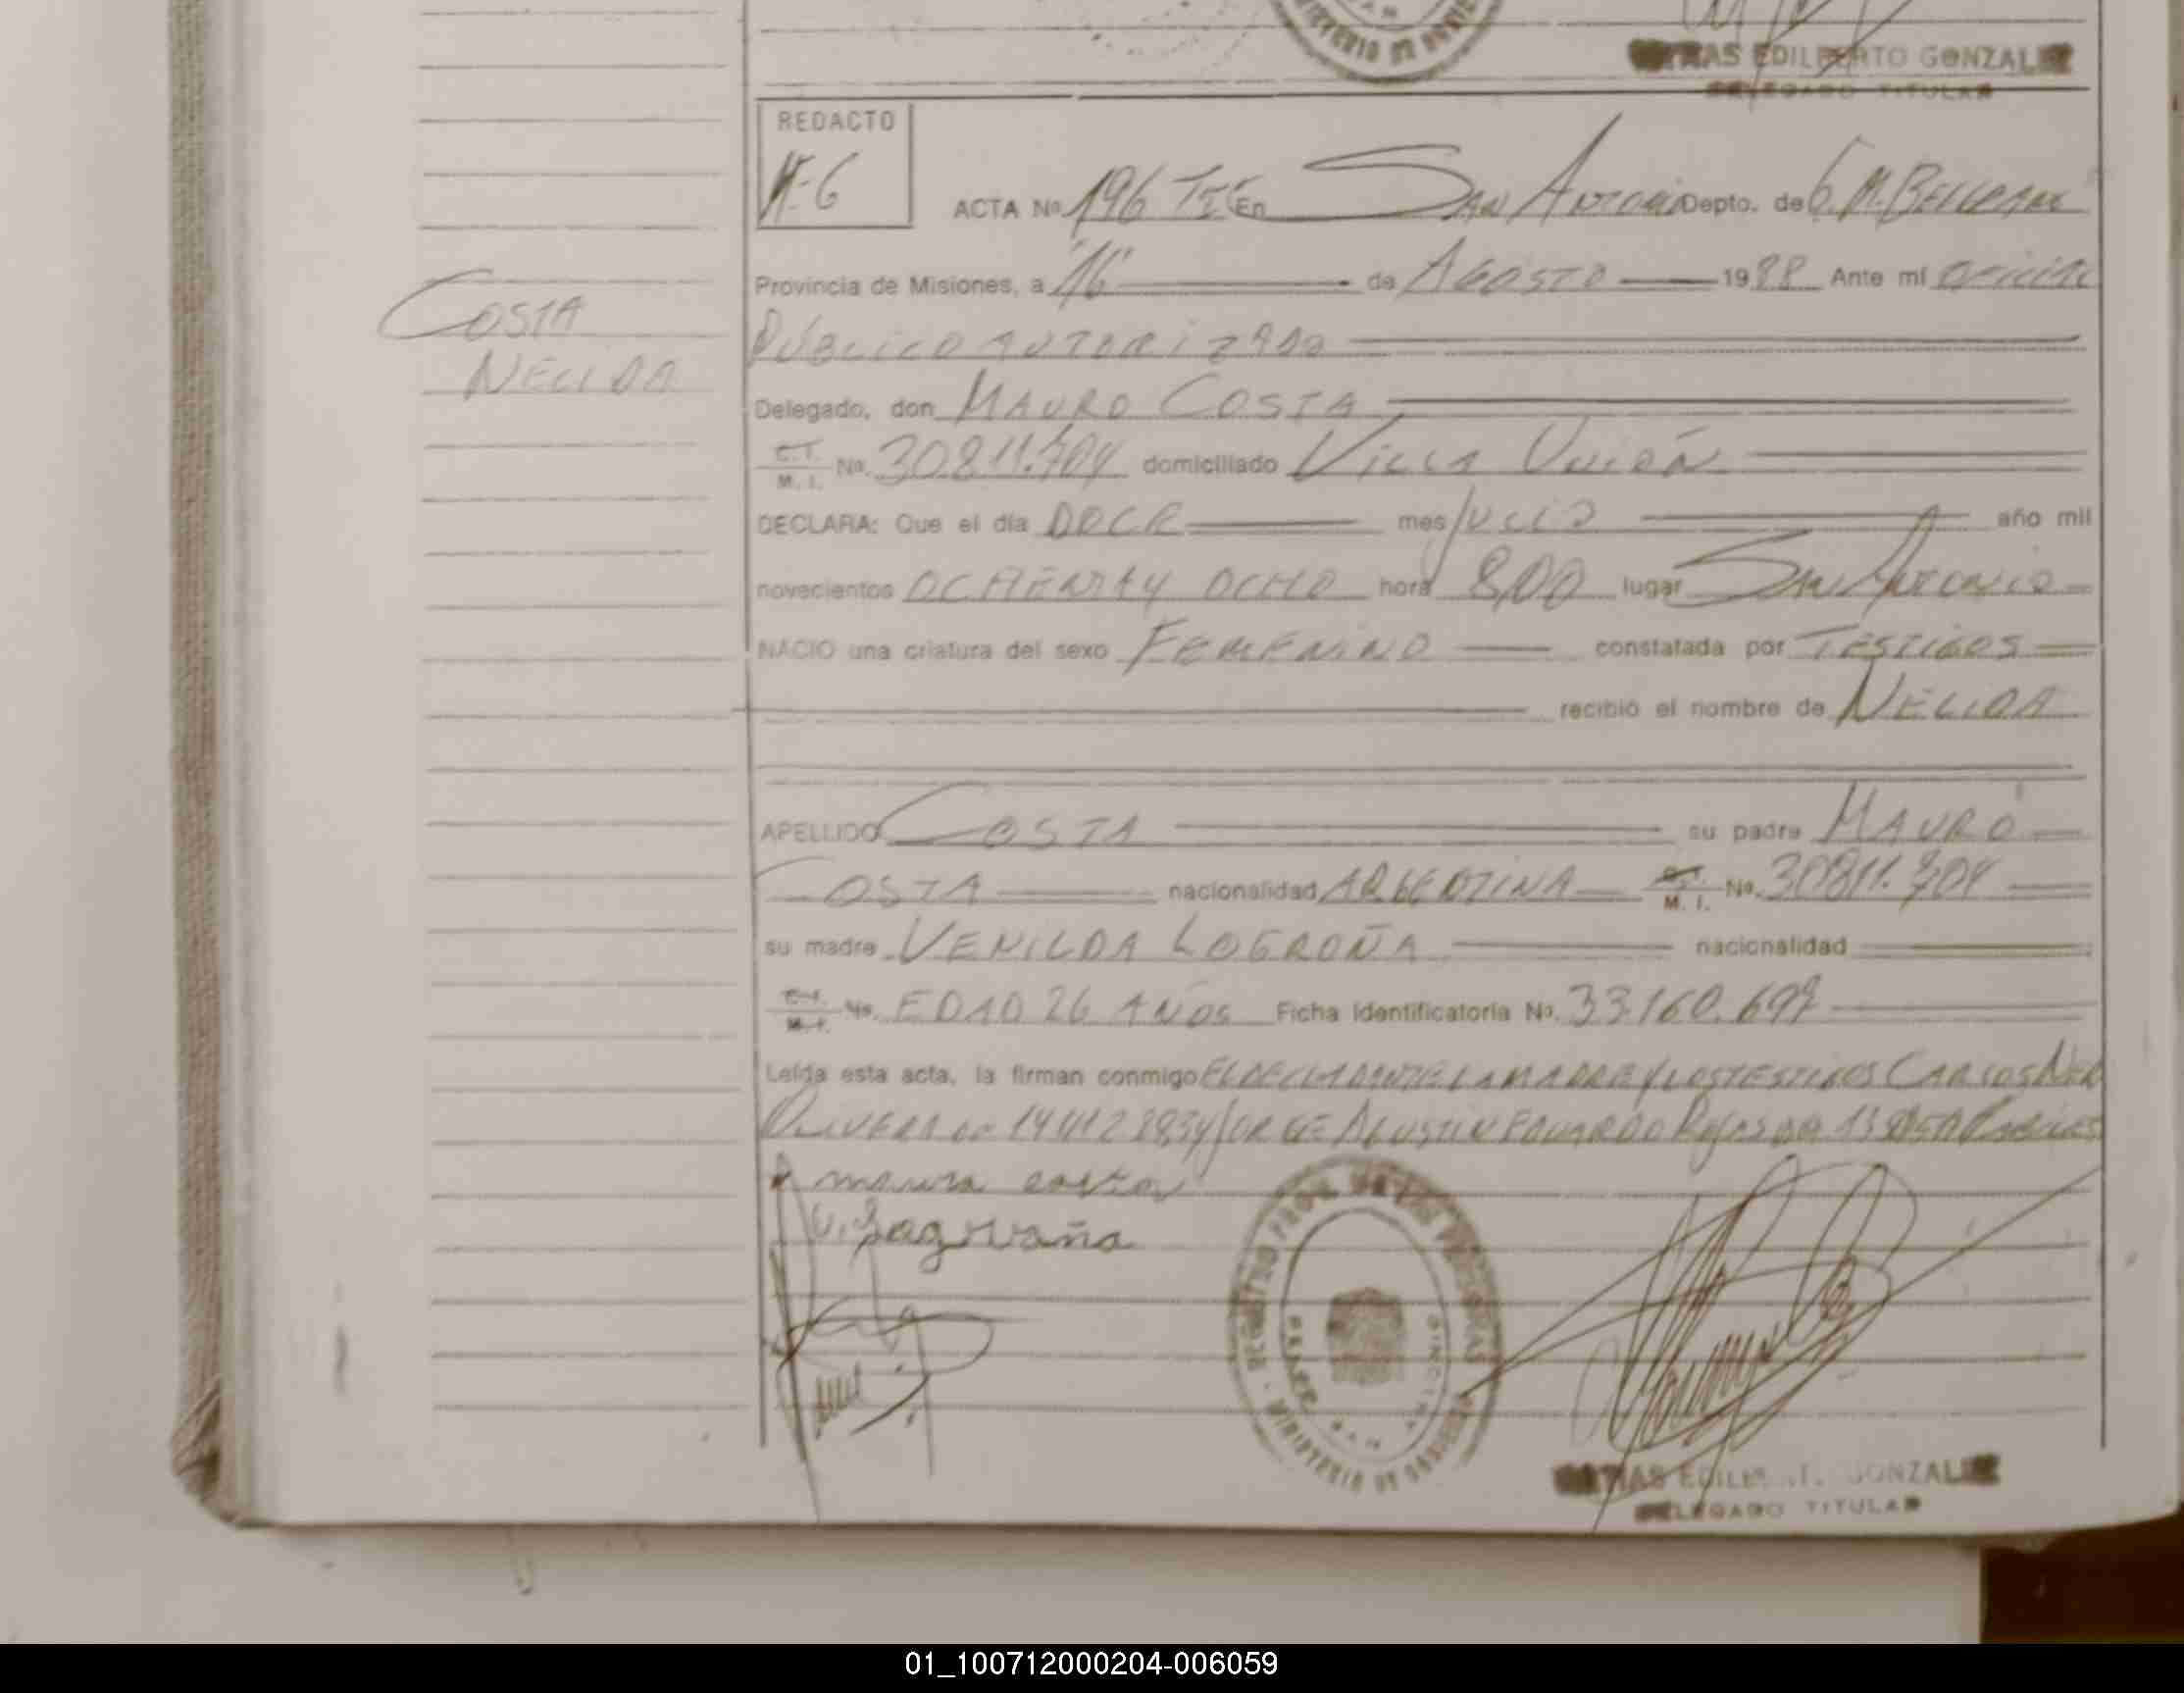 MATIAS EDILBERTO GONZALEZ
DELEGADO TITULAR
REDACTO
ACTA No 196 TI En San Antonio Depto. de G. M. Belgrano
Provincia de Misiones, a "16" de Agosto 1988 Ante mí Oficial
Público Autorizado
COSTA
NELIDA
Delegado, don MAURO COSTA
C.I. M.I. No. 30.811.704 domiciliado Villa Unión
DECLARA: Que el día DOCE mes Julio año mil
novecientos OCHENTA Y OCHO hora 8,00 lugar San Antonio
NACIO una criatura del sexo FEMENINO constatada por TESTIGOS
recibió el nombre de NELIDA
APELLIDO COSTA su padre MAURO
COSTA nacionalidad ARGENTINA C.I. M.I. No. 30811.704
su madre VENILDA LOGROÑA nacionalidad
C.I. M.I. No. EDAD 26 AÑOS Ficha Identificatoria No. 33.160.699
Leída esta acta, la firman conmigo EL DECLARANTE LA MADRE Y LOS TESTIGOS CARLOS
AGUSTIN EDUARDO Rojas
mauro costa
V. Logroña
MATIAS GONZALEZ
DELEGADO TITULAR
01_100712000204-006059